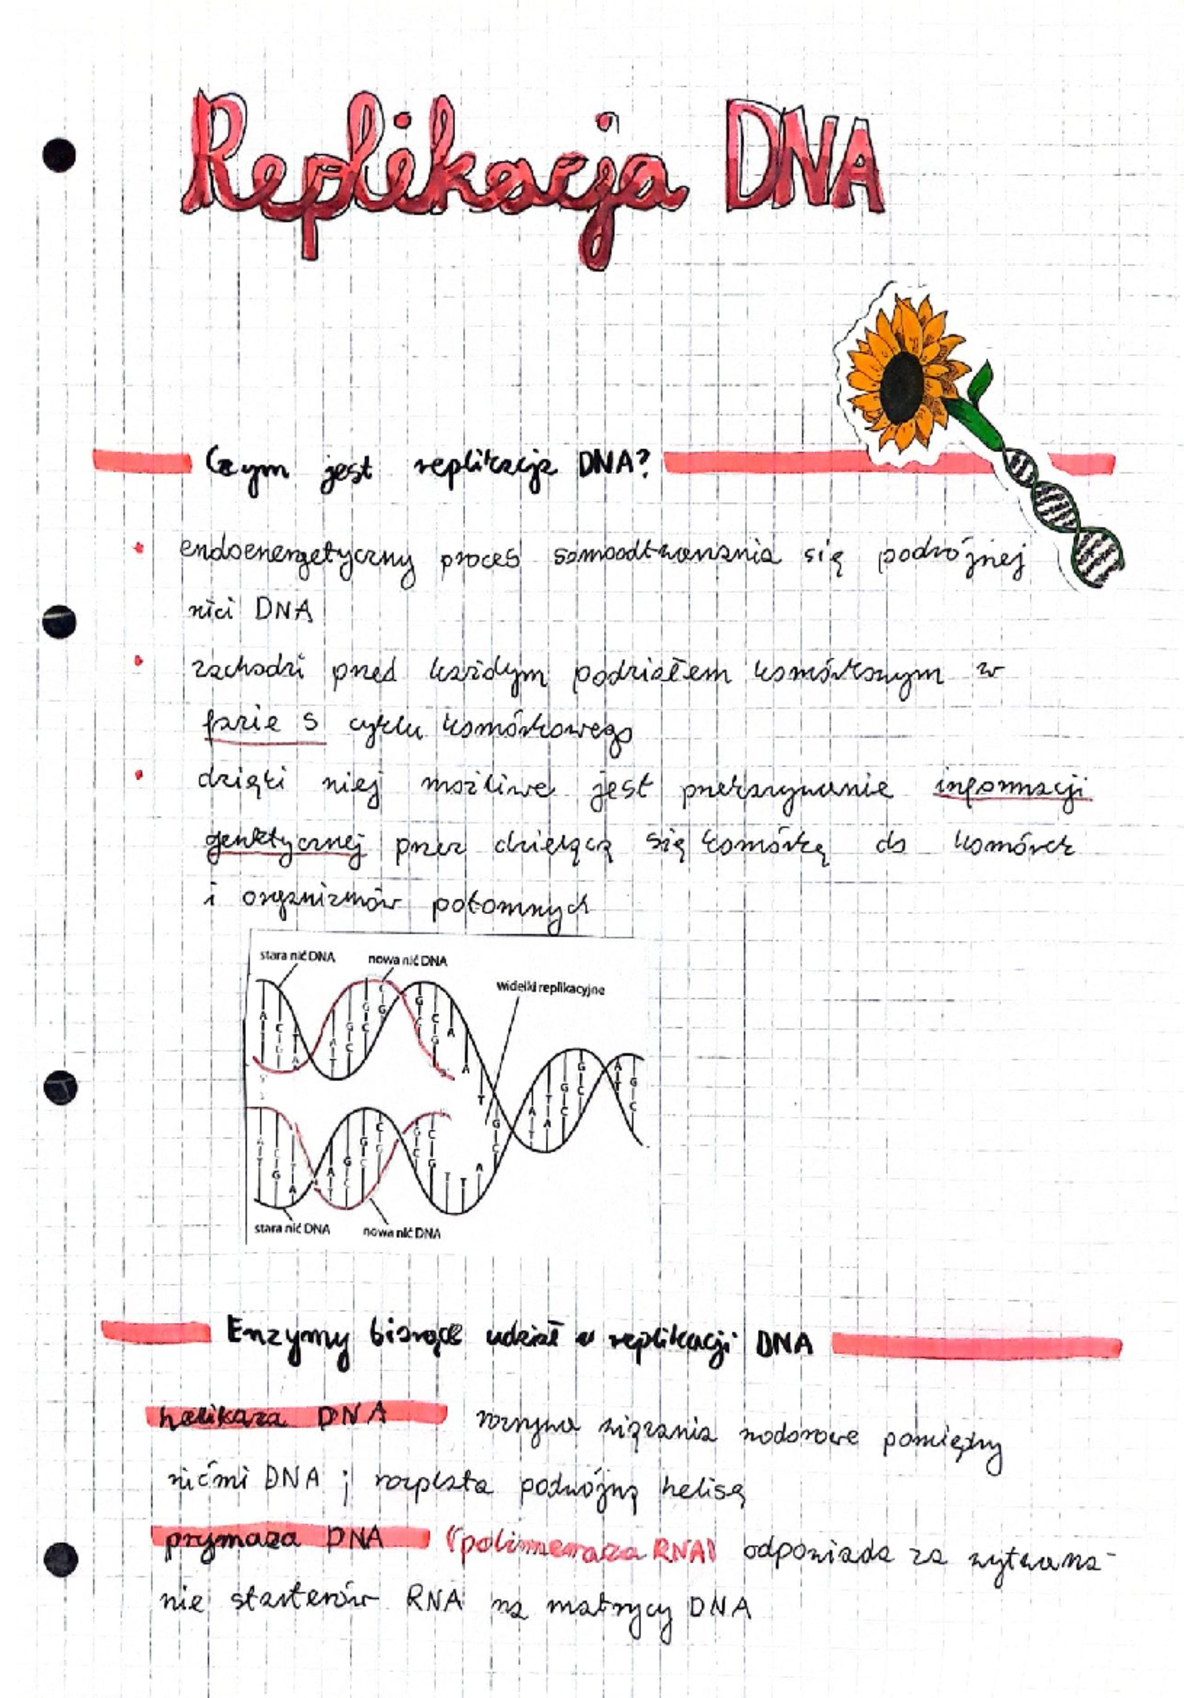 Replikacja DNA
Czym jest replikacja DNA?
• endoenergetyczny proces samoodtwarzania się podwójnej
nici DNA
• zachodzi przed każdym podziałem komórkowym w
fazie S cyklu komórkowego
• dzięki niej możliwe jest przekazywanie informacji
genetycznej przez dzielącą się komórkę do komórek
i organizmów potomnych
stara nić DNA nowa nić DNA
widełki replikacyjne
stara nić DNA nowa nić DNA
Enzymy biorące udział w replikacji DNA
helikaza DNA rozrywa wiązania wodorowe pomiędzy
nićmi DNA; rozplata podwójną helisę
prymaza DNA (polimeraza RNA) odpowiada za wytwarza-
nie starterów RNA na matrycy DNA